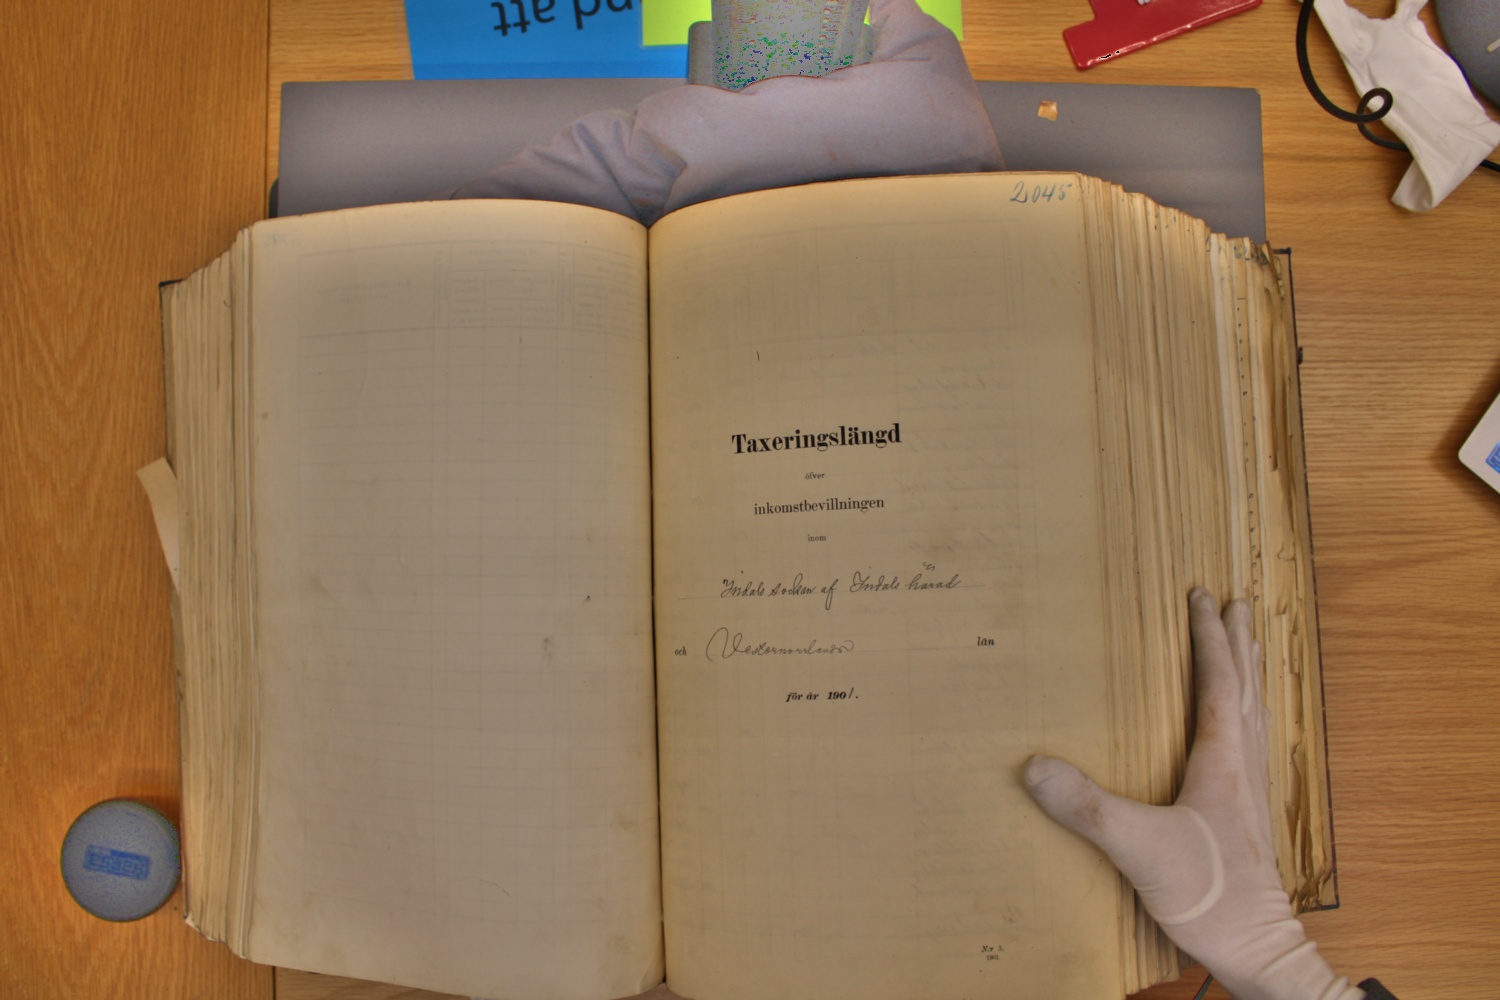 nd att
2045
Taxeringslängd
öfver
inkomstbevillningen
inom
Indals socken af Indals härad
och Vesternorrlands län
för år 1901.
N:r 5.